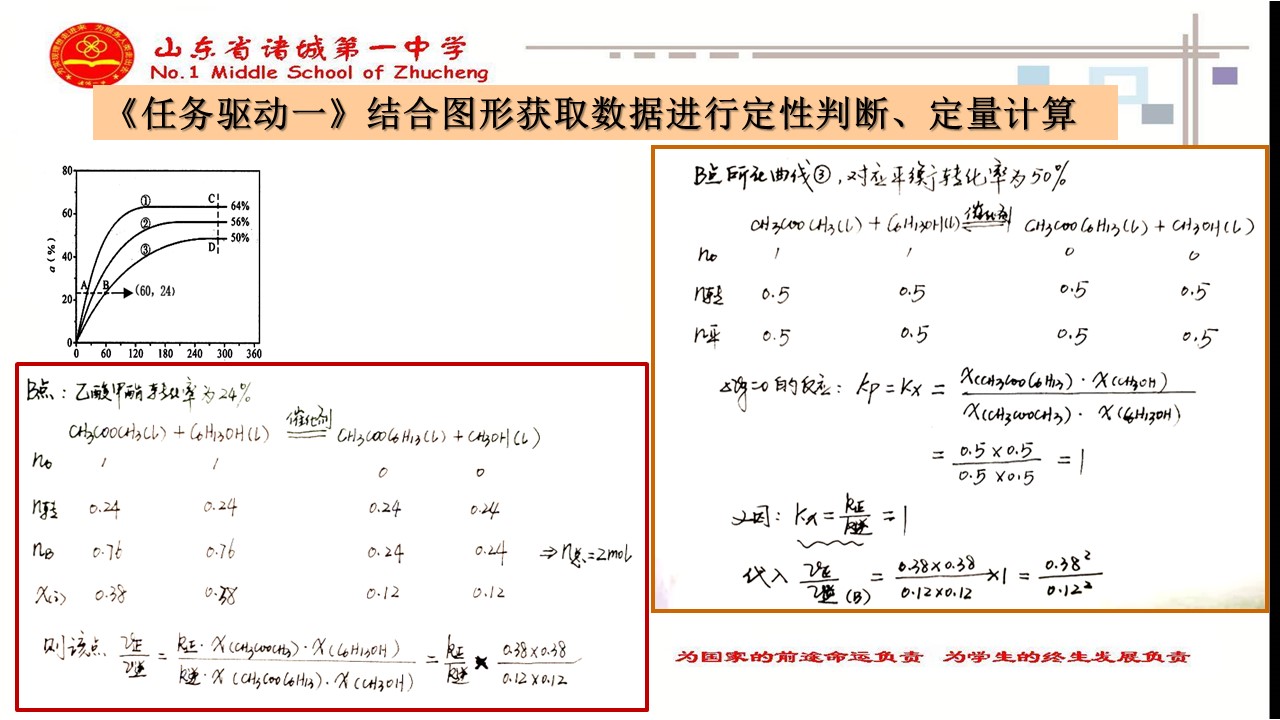 山东省诸城第一中学
No.1 Middle School of Zhucheng
《任务驱动一》结合图形获取数据进行定性判断、定量计算
80
60
40
20
0
a(%)
① C 64%
② 56%
③ D 50%
A B (60, 24)
0 60 120 180 240 300 360
B点：乙酸甲酯转化率为24%
CH3COOCH3(l) + C6H13OH(l) 催化剂 CH3COOC6H13(l) + CH3OH(l)
n0 1 1 0 0
n转 0.24 0.24 0.24 0.24
nB 0.76 0.76 0.24 0.24 ⇒ n总=2mol
X(i) 0.38 0.38 0.12 0.12
则该点 v正/v逆 = k正·X(CH3COOCH3)·X(C6H13OH) / k逆·X(CH3COOC6H13)·X(CH3OH) = k正/k逆 × 0.38×0.38 / 0.12×0.12
B点所在曲线③，对应平衡转化率为50%
CH3COOCH3(l) + C6H13OH(l) 催化剂 CH3COOC6H13(l) + CH3OH(l)
n0 1 1 0 0
n转 0.5 0.5 0.5 0.5
n平 0.5 0.5 0.5 0.5
△Vg=0的反应：Kp=Kx = X(CH3COOC6H13)·X(CH3OH) / X(CH3COOCH3)·X(C6H13OH)
= 0.5×0.5 / 0.5×0.5 = 1
又因：Kx = k正/k逆 = 1
代入 v正/v逆 (B) = 0.38×0.38 / 0.12×0.12 ×1 = 0.38² / 0.12²
为国家的前途命运负责 为学生的终生发展负责